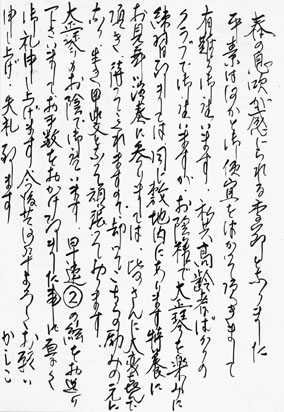 春の息吹が感じられる季節となりました
平素は何かと御便宜をはかって頂きまして
有難う御座います 私共高齢者ばかりの
クラブで御座いますが お陰様で大正琴を楽しみに
練習 りまして 同じ敷地内にあります特養に
お見舞い演奏に参りましては、皆さんに大変喜んで
頂き 待っててくれますので 却ってこちらの励みの元に
なり 生き甲斐となって頑張って居ります
大正琴もお陰で御座います 早速②の絵をお送り
下さいましてお手数をおかけ致しました事 重ねて
御礼申し上げます 今後共何卒よろしくお願い
申し上げ 失礼致します
かしこ